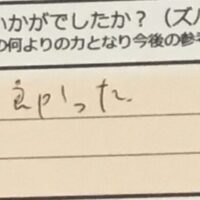 いかがでしたか？（ズバ
の何よりの力となり今後の参考
良かった